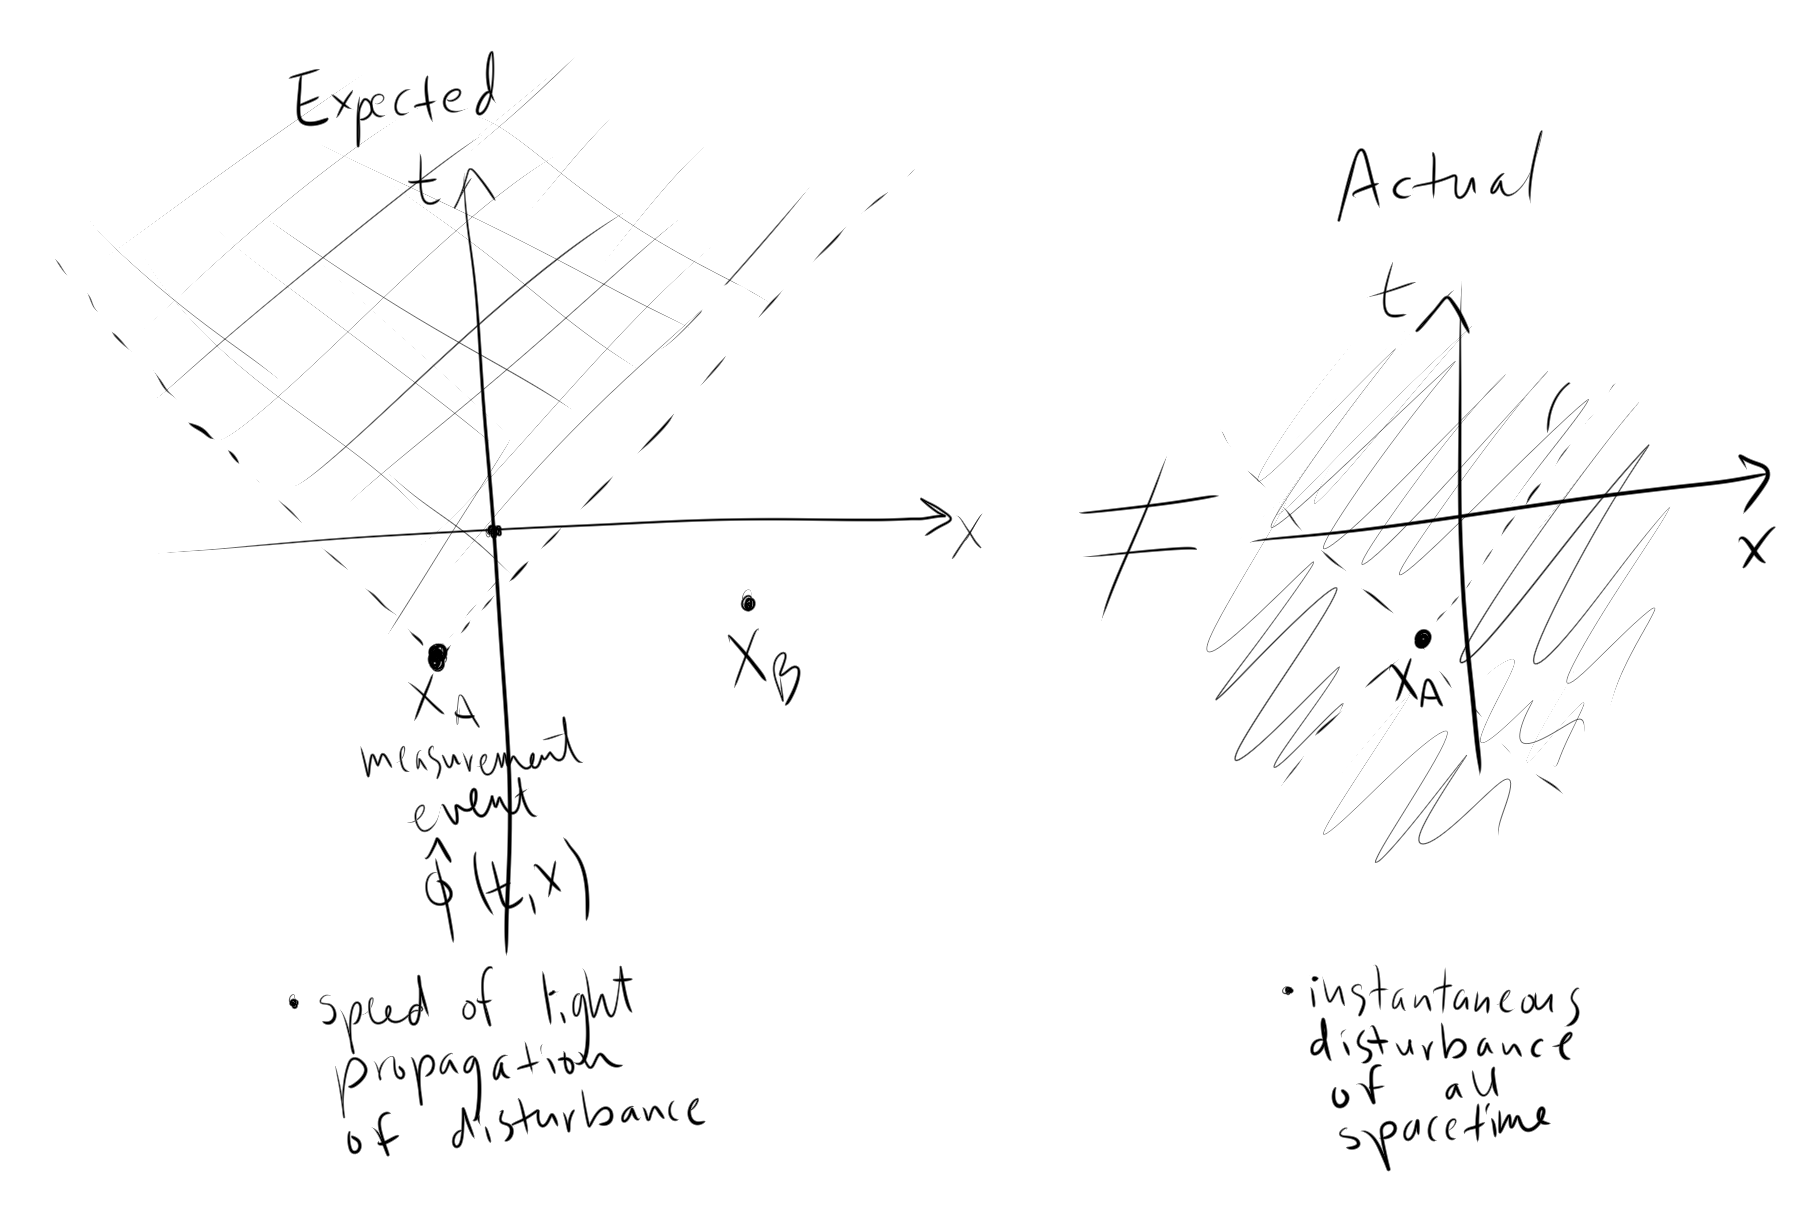 Expected
t
x
X_A
X_B
measurement
event
φ̂ (t,x)
• speed of light
propagation
of disturbance
≠
Actual
t
x
X_A
• instantaneous
disturbance
of all
spacetime